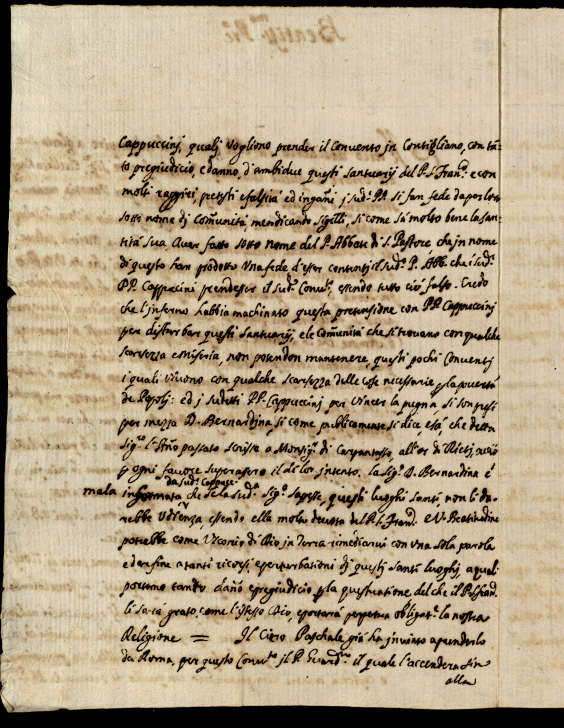 Cappuccinj, qualj Vogliono prender il Convento jn Contigliano, con tã-
to pregiudicio, e danno, d'ambidue questi Santuarij del P. S. Fran.co e con
molti raggiri pretesti e falsità ed ingañi j sud.i PP. si fan fede da per loro
sotto nome dj Com̃unità, mendicando sigilli, si come sà molto bene la San-
tità Sua Aver fatto sotto nome del P. Abbate di S. Pastore che jn nome
di questo han prodotto Una fede d'esser contentj il sud.o P. Abb. che i sud.i
PP. Cappuccini prendesser il sud.o Conv.to, essendo tutto ciò falso. Credo
che l'inferno habbia machinato questa pretensione con PP. Cappuccinj
per disturbar questi Santuarij, e le Com̃unità che si trovano con qualche
scarsezza e Miseria, non potendon mantenere questi pochi Conventj
i quali vivono con qualche scarsezza delle cose necessarie p la povertà
de Popolj: ed j sudetti PP. Cappuccinj per Vincer la pugna si son
per mezza D. Bernardina si come publicamente si dice e sà, che detta
Sig.ra l'Año passato scrisse a Monsig.r di Carpantesso, all'or di Rietj, acciò
p ogni favore superassero il di lor jntento. la Sig.ra D. Bernardina é
da sud.i Cappucc.
mala informata che se la sud.a Sig.ra sapesse, questi luoghi Santi, non li da-
rebbe Udienza, essendo ella molto devota del P. S. Fran.co e V. Beatitudine
potrebbe come Vicario di Dio jn Terra rimediarvi con una sola parola
e dar fine a tanti ricorsi, e perturbationi dj questi Santi luoghj, a quali
portano tanto dãno e pregiudicio p la questuatione del che il P. S. Fran.
li sarà grato, come l'istesso Dio, e portarà perpetua obligat.e la nostra
Religione = Il Cirro Paschale già hà jnviato a prenderlo
da Roma, per questo Conv.to jl P. Guard.no il quale l'accenderà sin
alla